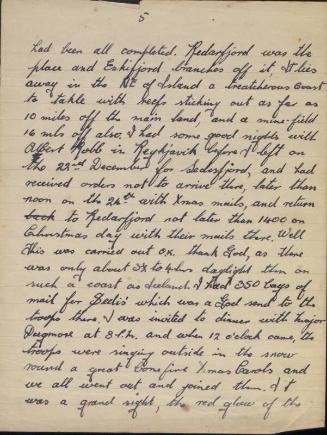 5
had been all completed. Redarfjord was the
place and Eskifjord branches off it, It lies
away in the NE of Island a treatcherous coast
to takle with reefs sticking out as far as
10 miles off the main land and a mine-field
16 mls off also, I had some good nights with
Albert Robb in Reykjavik before I left on
the 22nd December for Sedosfjord, and had
received orders not to arrive there, later than
noon on the 24th with Xmas mails, and return
back to Redarfjord not later than 1400 on
Christmas day with their mails there. Well
this was carried out O.K. thank God, as there
was only about 3½ to 4 hrs daylight then on
such a coast as Iceland. I had 350 bags of
mail for which was a God send to the
troops there. I was invited to dinner with major
at 8 P.M. and when 12 o'clock came, the
troops were singing outside in the snow
round a great bonefire Xmas Carols and
we all went out and joined them. It
was a grand sight, the red glow of the